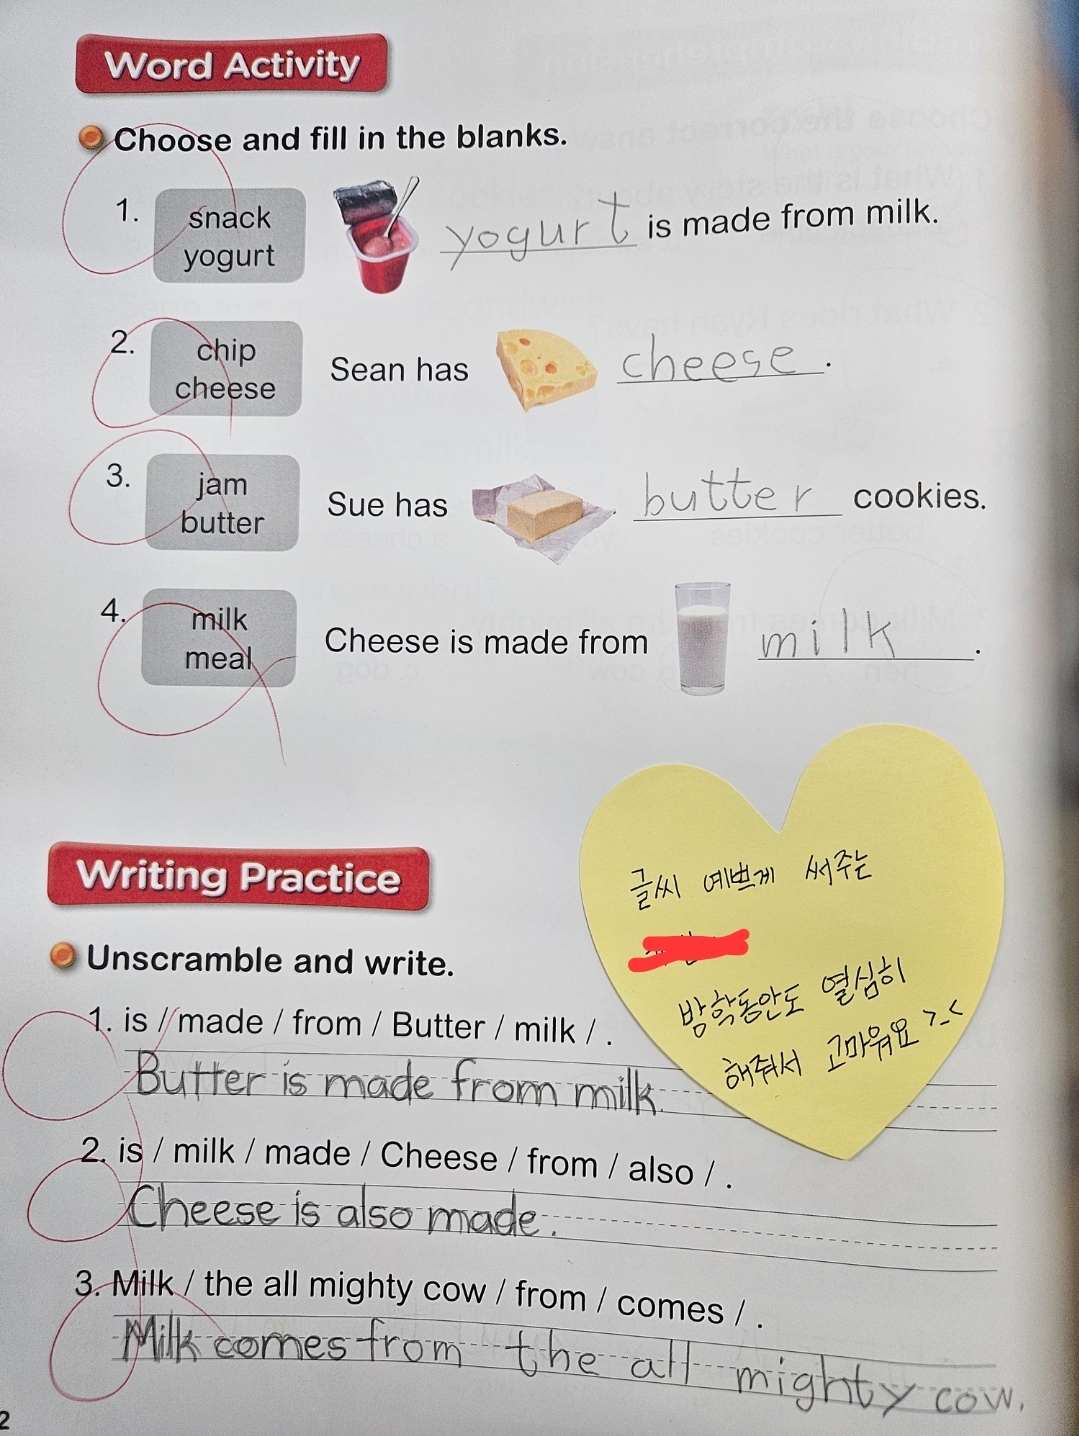 Word Activity
Choose and fill in the blanks.
1. snack
yogurt
yogurt is made from milk.
2. chip
cheese
Sean has cheese.
3. jam
butter
Sue has butter cookies.
4. milk
meal
Cheese is made from milk.
글씨 예쁘게 써주는
방학동안도 열심히
해줘서 고마워요 >_<
Writing Practice
Unscramble and write.
1. is / made / from / Butter / milk / .
Butter is made from milk.
2. is / milk / made / Cheese / from / also / .
Cheese is also made.
3. Milk / the all mighty cow / from / comes / .
Milk comes from the all mighty cow.
2